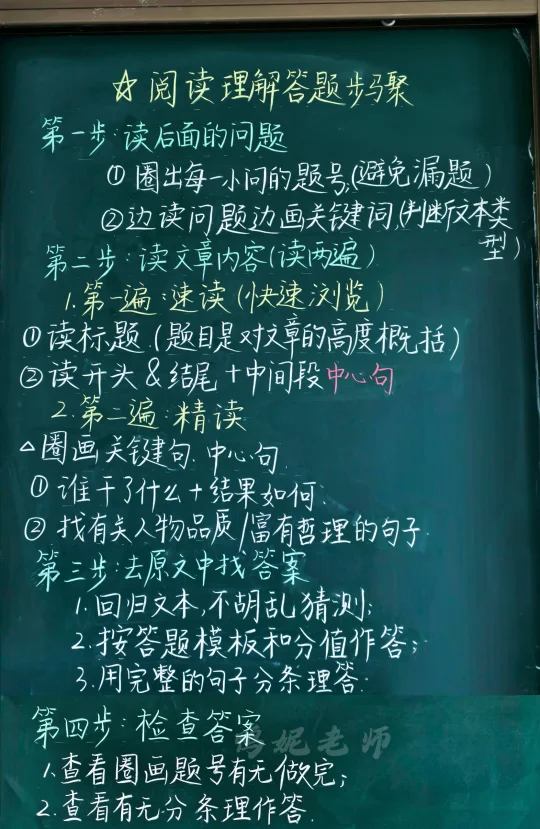 ☆ 阅读理解答题步骤
第一步:读后面的问题
① 圈出每一小问的题号,(避免漏题)
②边读问题边画关键词(判断文本类
型)
第二步:读文章内容(读两遍)
1.第一遍:速读(快速浏览)
①读标题.(题目是对文章的高度概括)
②读开头&结尾+中间段中心句
2.第二遍:精读
△圈画关键句.中心句.
①谁干了什么+结果如何.
②找有关人物品质/富有哲理的句子.
第三步:去原文中找答案
1.回归文本,不胡乱猜测;
2.按答题模板和分值作答;
3.用完整的句子分条理答.
第四步:检查答案
妮老师
1.查看圈画题号有无做完;
2.查看有无分条理作答.